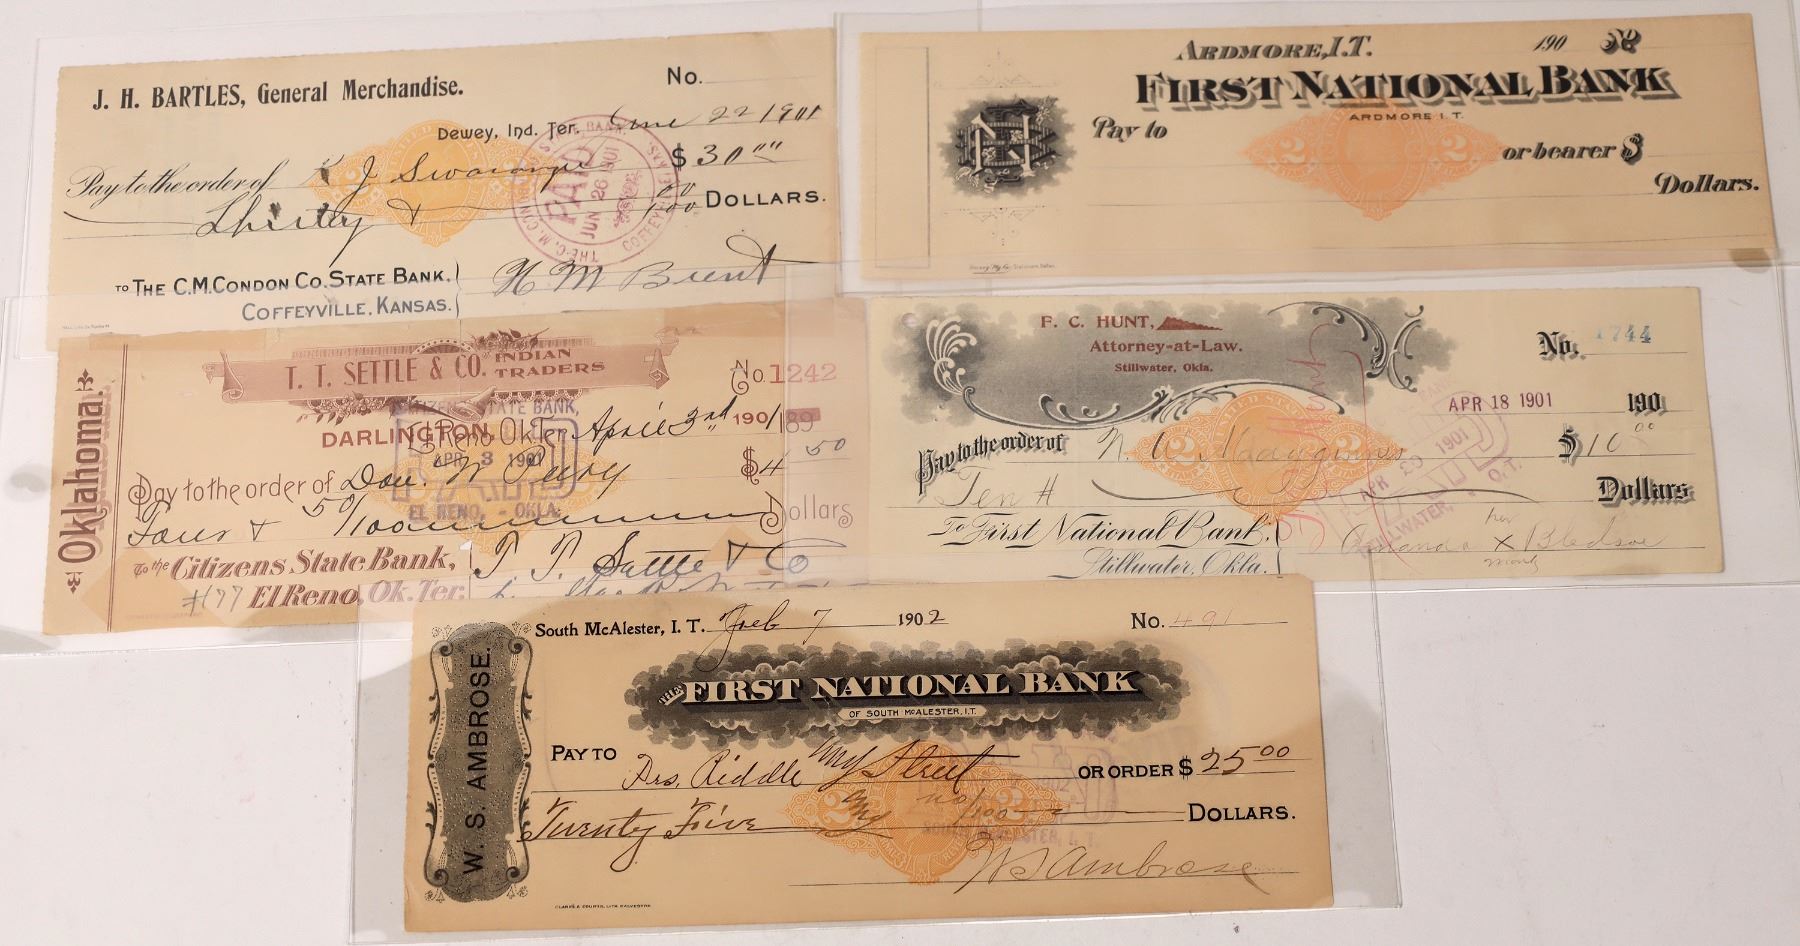 J. H. BARTLES, General Merchandise.
No.
Dewey, Ind. Ter. June 22 1901
Pay to the order of K J
$ 30.00
Thirty + 00/100 DOLLARS.
TO THE C.M. CONDON CO. STATE BANK.
COFFEYVILLE, KANSAS.
H M Brent
PAID
JUN 26 1901
COFFEYVILLE, KAS.
ARDMORE, I.T. 190 No
FIRST NATIONAL BANK
ARDMORE I. T.
Pay to
or bearer $
Dollars.
2 2
Oklahoma.
T. T. SETTLE & CO. INDIAN TRADERS
No. 1242
DARLINGTON, Ok. Ter. April 3rd 1901
189
CITIZENS STATE BANK,
APR 3 1901
EL RENO, - OKLA.
Pay to the order of Don. W.
$4 50
Four & 50/100 Dollars
To the Citizens State Bank,
#177 El Reno, Ok. Ter.
T. T. Settle & Co
F. C. HUNT,
Attorney-at-Law.
Stillwater, Okla.
No. 1744
APR 18 1901 190
Pay to the order of N. W.
$10 00
Ten # Dollars
To First National Bank,
Stillwater, Okla.
Amanda her X mark Bledsoe
APR 29 1901
STILLWATER, O.T.
W. S. AMBROSE.
South McAlester, I. T. Feb 7 1902
No. 491
THE FIRST NATIONAL BANK
OF SOUTH McALESTER, I.T.
PAY TO Drs. Riddle & Street OR ORDER $25.00
Twenty Five no/100 DOLLARS.
W S Ambrose
2 2